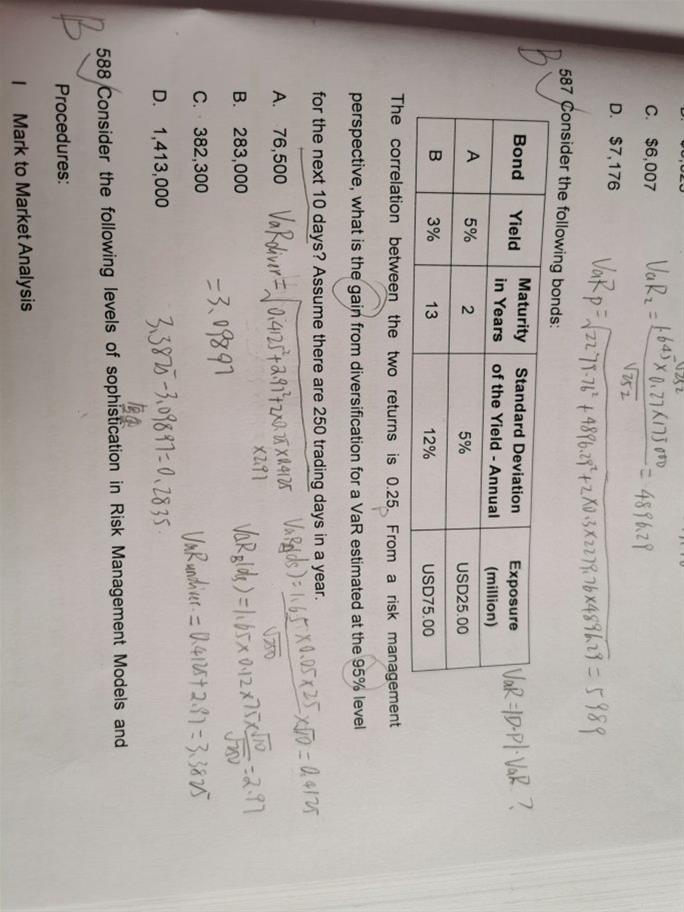 C. $6,007
D. $7,176
VaR₂ = 1.645 × 0.27 × 175000 / √252 = 4896.29
VaRp = √2279.76² + 4896.29² + 2×0.3×2279.76×4896.29 = 5989
B
587 Consider the following bonds:
Bond Yield Maturity in Years Standard Deviation of the Yield - Annual Exposure (million)
A 5% 2 5% USD25.00
B 3% 13 12% USD75.00
VaR = |D·P|·VaR ?
The correlation between the two returns is 0.25. From a risk management
perspective, what is the gain from diversification for a VaR estimated at the 95% level
for the next 10 days? Assume there are 250 trading days in a year.
A. 76,500
B. 283,000
C. 382,300
D. 1,413,000
VaRdiver = √0.4125²+2.97²+2×0.25×0.4125
×2.97
= 3.09897
3.3825-3.09897=0.2835.
1.65×0.05×25×√10 = 0.4125
√250
1.65×0.12×75×√10/√250 = 2.97
VaRundiver. = 0.4125+2.97 = 3.3825
B
588 Consider the following levels of sophistication in Risk Management Models and
Procedures:
I Mark to Market Analysis